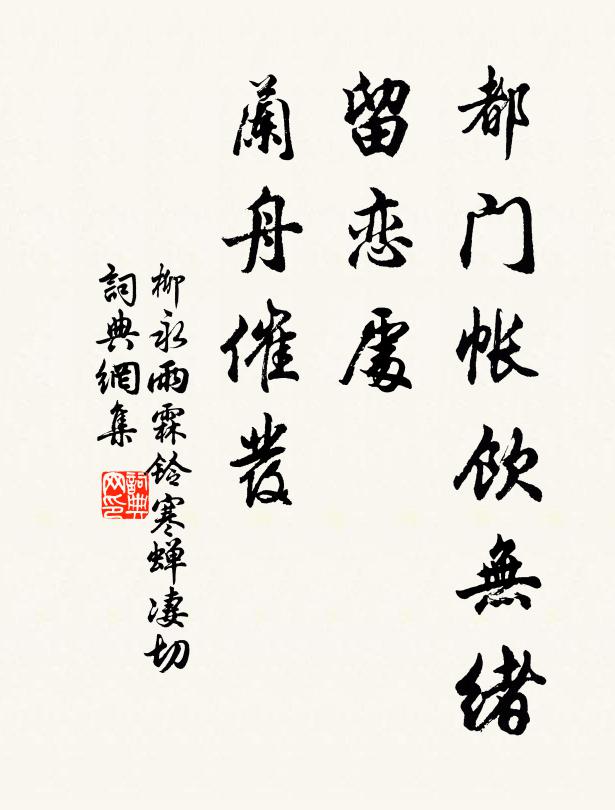 都门帐饮無緒
留恋處
蘭舟催發
柳永雨霖铃寒蝉凄切
詞典網集
詞典网印